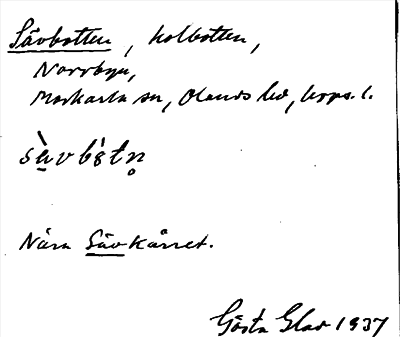 Sävbotten, kolbotten,
Norrbyn,
Morkarla sn, Olands hd, Upps. l.
sὰvbòtn̥
Nära Sävkärret.
Gösta Glav 1937